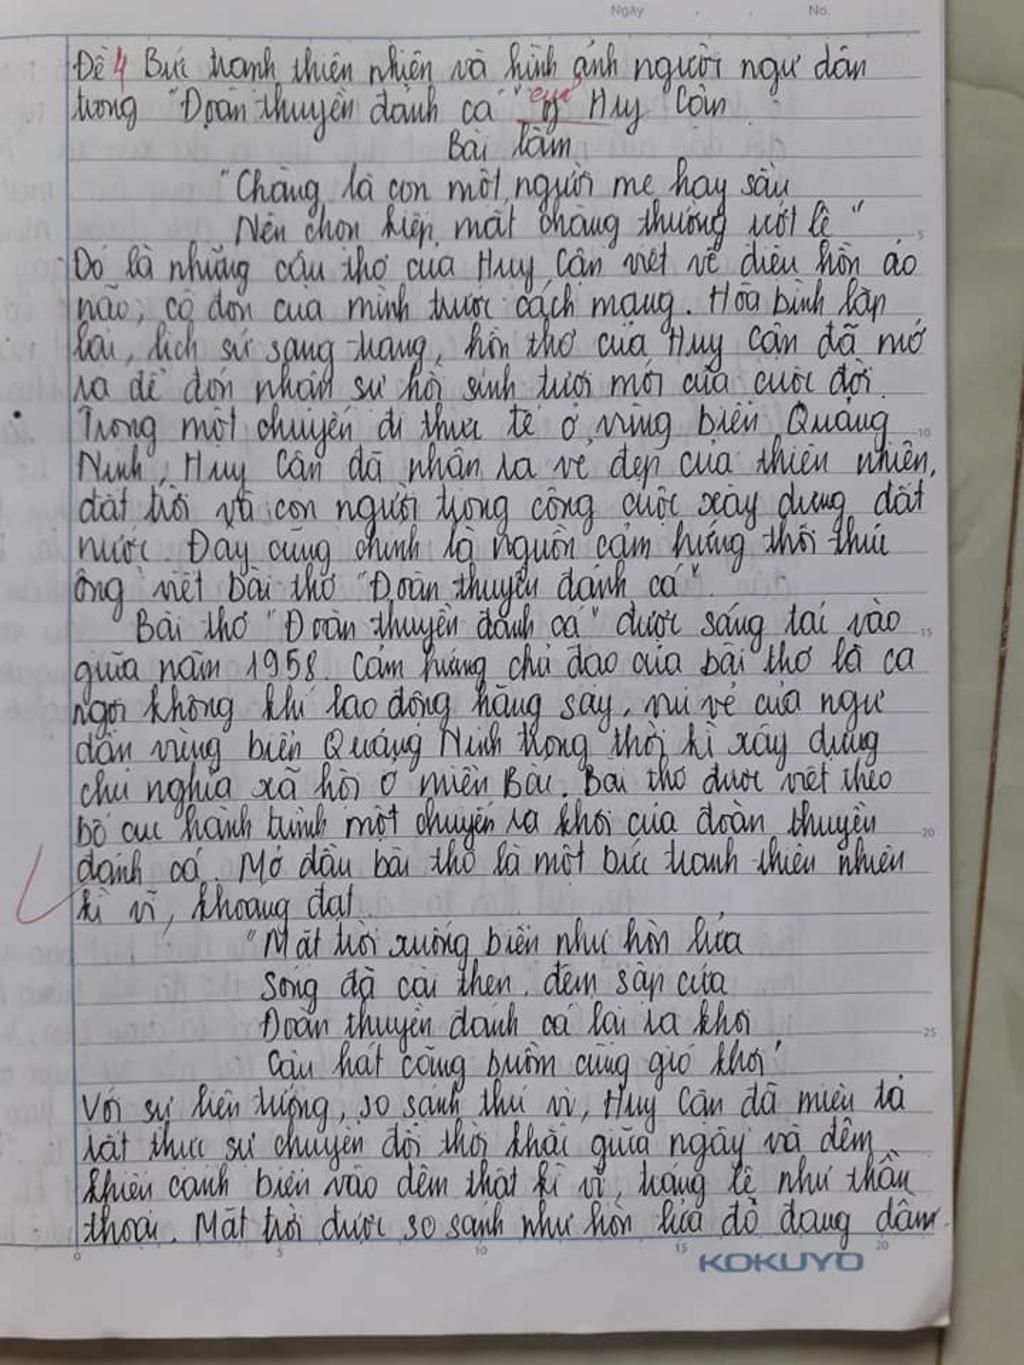 Ngày . . No.
Đề 4 Bức tranh thiên nhiên và hình ảnh người ngư dân
trong "Đoàn thuyền đánh cá" của Huy Cận
Bài làm
"Chàng là con một người mẹ hay sầu
Nên chọn kiếp mắt chàng thường ướt lệ"
Đó là những câu thơ của Huy Cận viết về điệu hồn áo
não, cô đơn của mình trước cách mạng. Hòa bình lập
lại, lịch sử sang trang, hồn thơ của Huy Cận đã mở
ra để đón nhận sự hồi sinh tươi mới của cuộc đời.
Trong một chuyến đi thực tế ở vùng biển Quảng
Ninh, Huy Cận đã nhận ra vẻ đẹp của thiên nhiên,
đất trời và con người trong công cuộc xây dựng đất
nước. Đây cũng chính là nguồn cảm hứng thôi thúc
ông viết bài thơ "Đoàn thuyền đánh cá".
Bài thơ "Đoàn thuyền đánh cá" được sáng tác vào
giữa năm 1958. Cảm hứng chủ đạo của bài thơ là ca
ngợi không khí lao động hăng say, vui vẻ của ngư
dân vùng biển Quảng Ninh trong thời kì xây dựng
chủ nghĩa xã hội ở miền Bắc. Bài thơ được viết theo
bố cục hành trình một chuyến ra khơi của đoàn thuyền
đánh cá. Mở đầu bài thơ là một bức tranh thiên nhiên
kì vĩ, khoáng đạt.
"Mặt trời xuống biển như hòn lửa
Sóng đã cài then, đêm sập cửa
Đoàn thuyền đánh cá lại ra khơi
Câu hát căng buồm cùng gió khơi"
Với sự liên tưởng, so sánh thú vị, Huy Cận đã miêu tả
rất thực sự chuyển đổi thời khắc giữa ngày và đêm
khiến cảnh biển vào đêm thật kì vĩ, tráng lệ như thần
thoại. Mặt trời được so sánh như hòn lửa đỏ đang dầm
0 5 10 15 20
KOKUYO